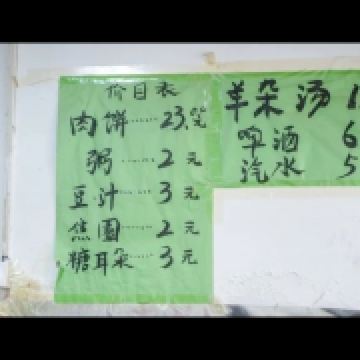 价目表
肉饼……23元
粥……2元
豆汁……3元
焦圈……2元
糖耳朵……3元
羊杂汤 1
啤酒 6
汽水 5